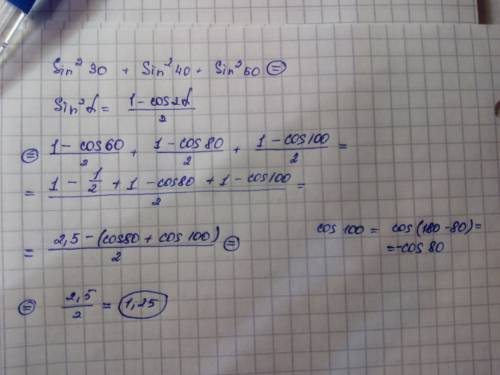 Sin² 30 + Sin² 40 + Sin² 50 =
Sin² α = (1 - cos2α)/2
= (1 - cos60)/2 + (1 - cos80)/2 + (1 - cos100)/2 =
= (1 - 1/2 + 1 - cos80 + 1 - cos100)/2 =
= (2,5 - (cos80 + cos100))/2 =
cos 100 = cos(180 - 80) =
= -cos 80
= 2,5/2 = 1,25